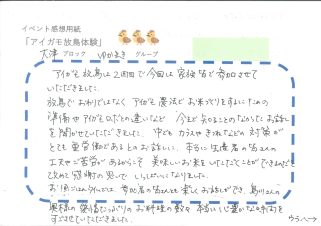 イベント感想用紙
「アイガモ放鳥体験」
大津 ブロック ゆかまき グループ
アイガモ放鳥は2回目で今回は家族皆で参加させて
いただきました。
放鳥で終わりではなく、アイガモ農法でお米づくりをするにあたっての
準備やアイガモとカモとの違いなど、今まで知ることのなかったお話し
を聞かせていただきました。中でもカラスやきつねなどの対策が
とても重労働であるとのお話しに、本当に生産者の皆さんの
工夫やご苦労があるからこそ美味しいお米をいただくことができるんだと
改めて感謝の思いでいっぱいになりました。
お昼ごはんタイムでは、参加者の皆さんとも楽しくお話しができ、
奥様の愛情たっぷりのお料理の数々、本当に心豊かな時間を
すごさせていただきました。
ウラへ→